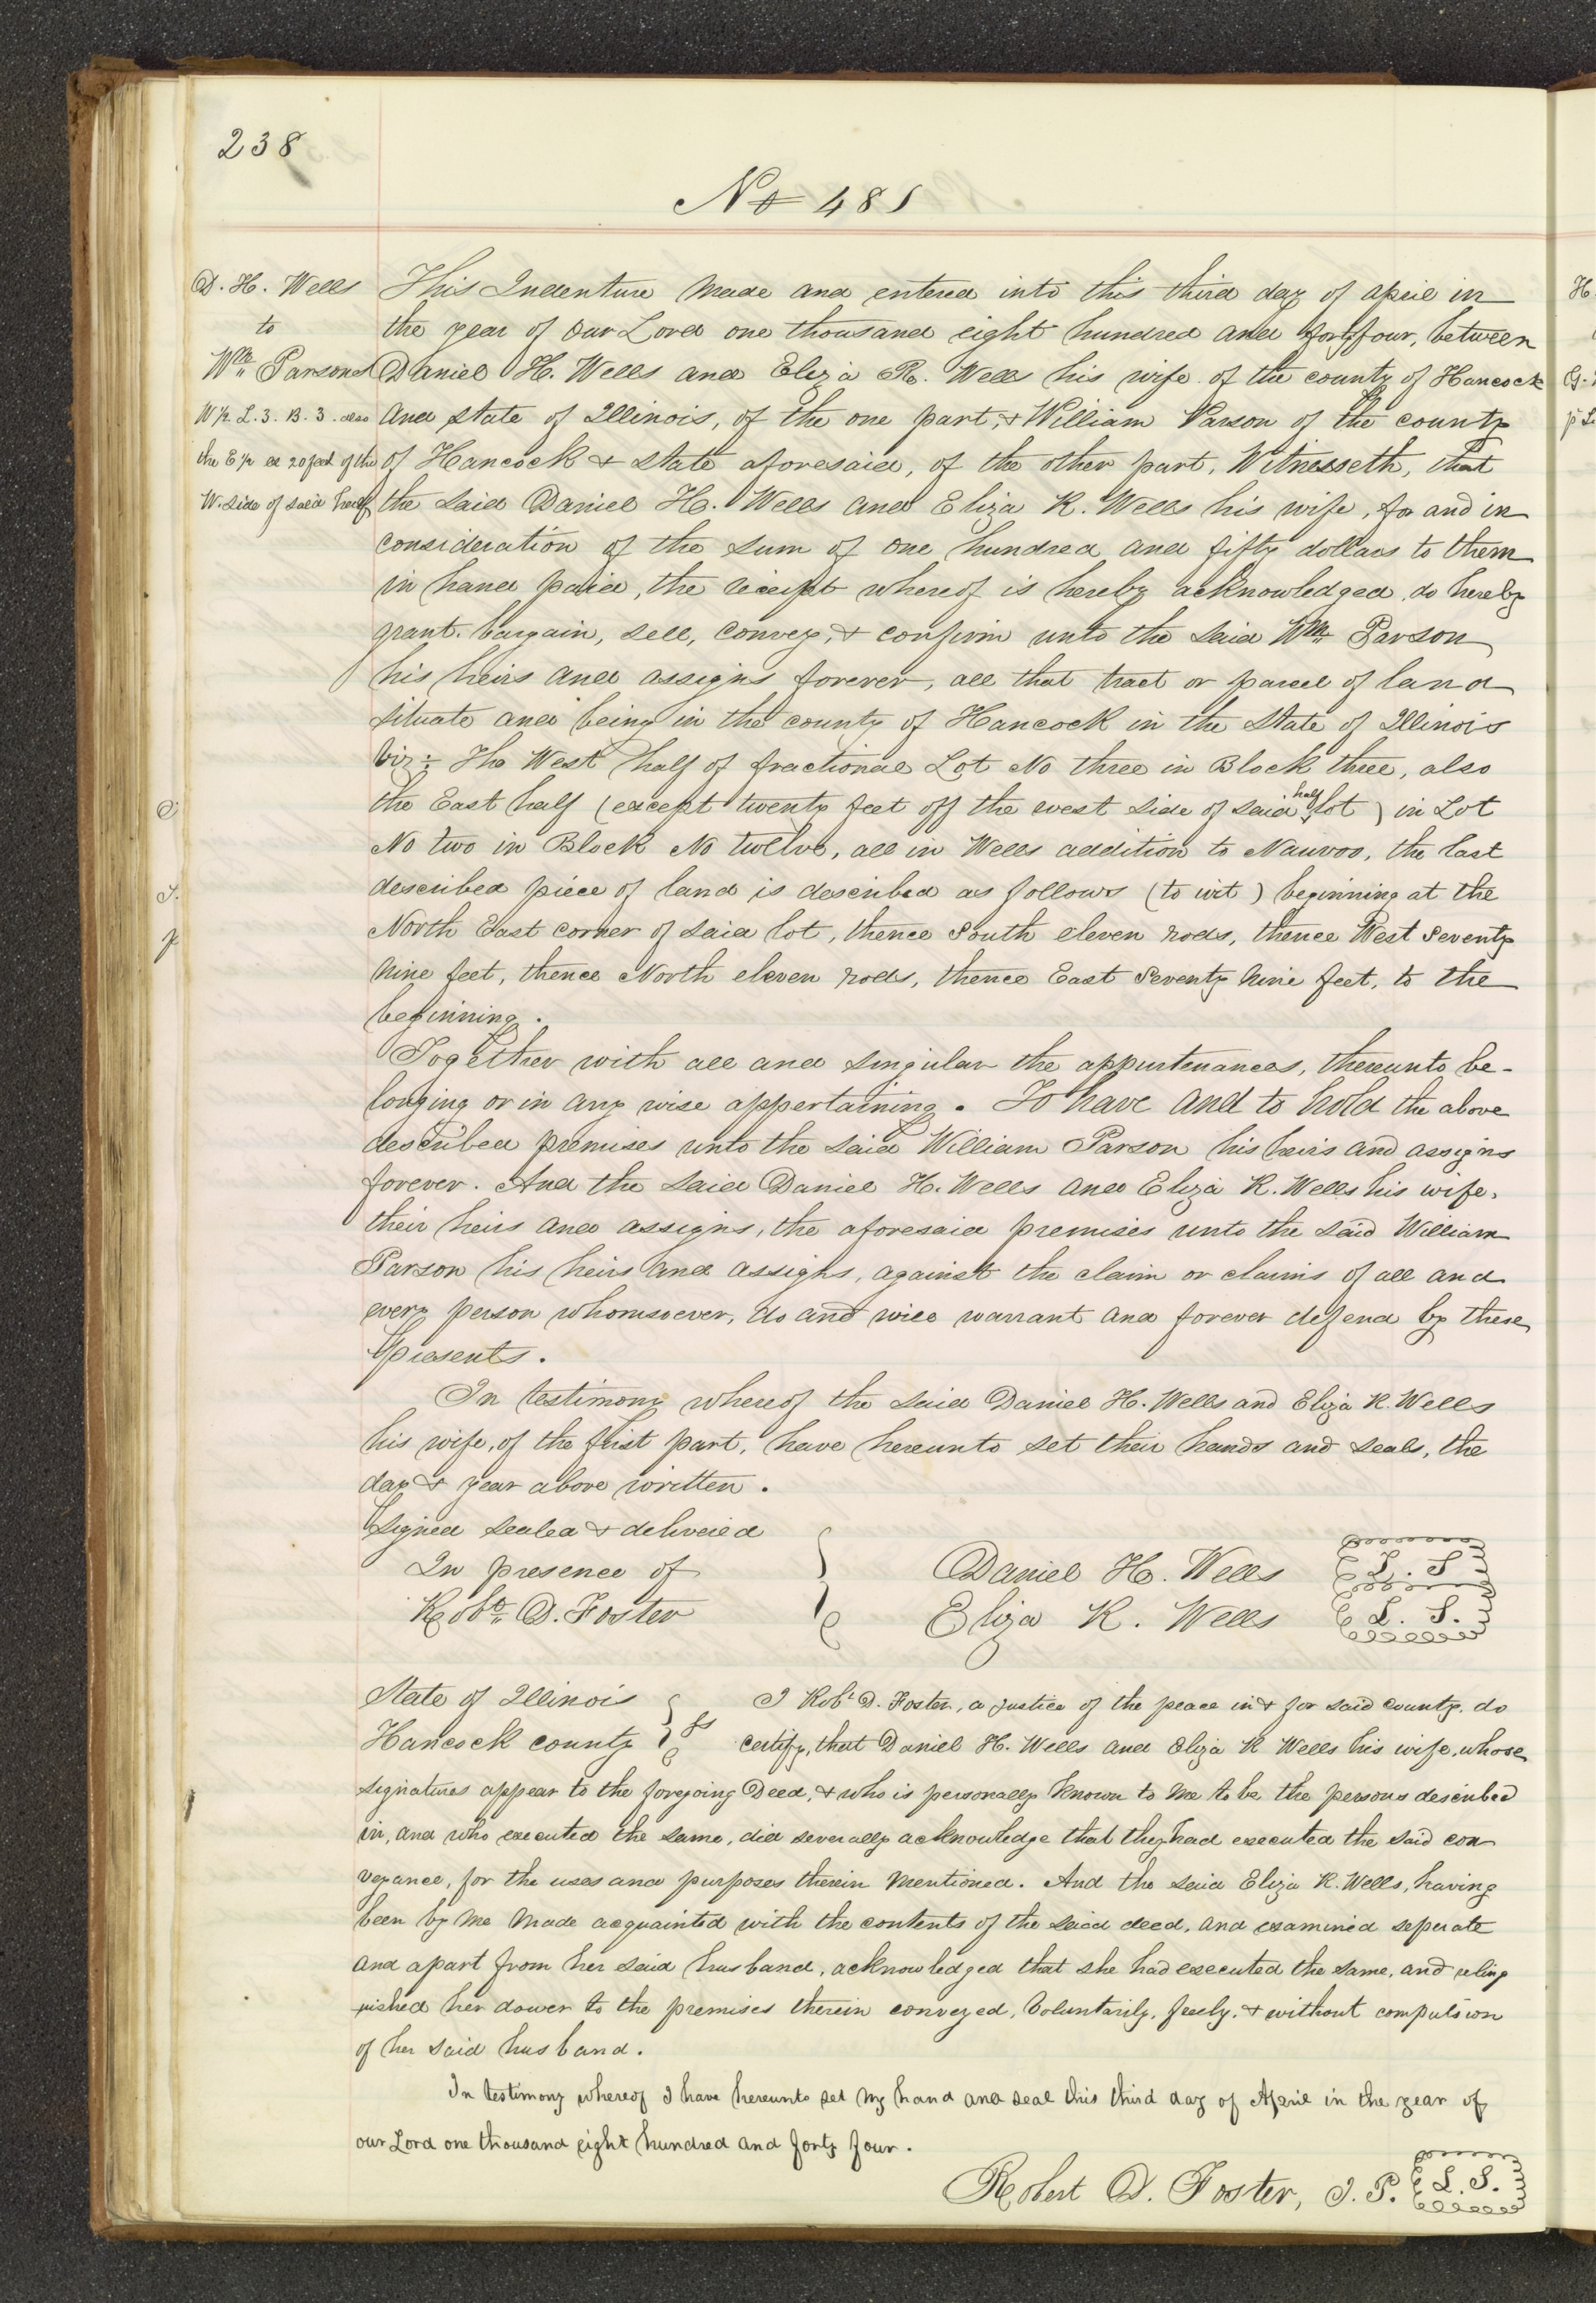 238
No 481
D. H. Wells
to
Wm Parson
W 1/2 L. 3. B. 3. also
the E 1/2 ex 20 feet of the
W. side of said half
This Indenture made and entered into this third day of april in
the year of our Lord one thousand eight hundred and forty four, between
Daniel H. Wells and Eliza R. Wells his wife of the county of Hancock
and state of Illinois, of the one part, & William Parson of the county
of Hancock & state aforesaid, of the other part, Witnesseth, that
the said Daniel H. Wells and Eliza R. Wells his wife, for and in
consideration of the sum of one hundred and fifty dollars to them
in hand paid, the receipt whereof is hereby acknowledged, do hereby
grant, bargain, sell, convey, & confirm unto the said Wm Parson
his heirs and assigns forever, all that tract or parcel of land
situate and being in the county of Hancock in the State of Illinois
viz: The West half of fractional Lot No three in Block three, also
the East half (except twenty feet off the west side of said half lot) in Lot
No two in Block No twelve, all in Wells addition to Nauvoo, the last
described piece of land is described as follows (to wit) beginning at the
North East corner of said lot, thence South eleven rods, thence West Seventy
nine feet, thence North eleven rods, thence East Seventy nine feet, to the
beginning.
Together with all and singular the appurtenances, thereunto be-
longing or in any wise appertaining. To have and to hold the above
described premises unto the said William Parson his heirs and assigns
forever. And the said Daniel H. Wells and Eliza R. Wells his wife,
their heirs and assigns, the aforesaid premises unto the said William
Parson his heirs and assigns, against the claim or claims of all and
every person whomsoever, do and will warrant and forever defend by these
presents.
In testimony whereof the said Daniel H. Wells and Eliza R. Wells
his wife, of the first part, have hereunto set their hands and seals, the
day & year above written.
Signed sealed & delivered
In presence of
Robt. D. Foster
Daniel H. Wells L. S
Eliza R. Wells L. S.
State of Illinois
Hancock county ss
I Robt D. Foster, a justice of the peace in & for said county, do
certify, that Daniel H. Wells and Eliza R Wells his wife, whose
signatures appear to the foregoing Deed, & who is personally known to me to be the persons described
in, and who executed the same, did severally acknowledge that they had executed the said con
veyance, for the uses and purposes therein mentioned. And the said Eliza R. Wells, having
been by me made acquainted with the contents of the said deed, and examined seperate
and apart from her said husband, acknowledged that she had executed the same, and relinq
uished her dower to the premises therein conveyed, voluntarily, freely, & without compulsion
of her said husband.
In testimony whereof I have hereunto set my hand and seal this third day of April in the year of
our Lord one thousand eight hundred and forty four.
Robert D. Foster, J. P. L. S.